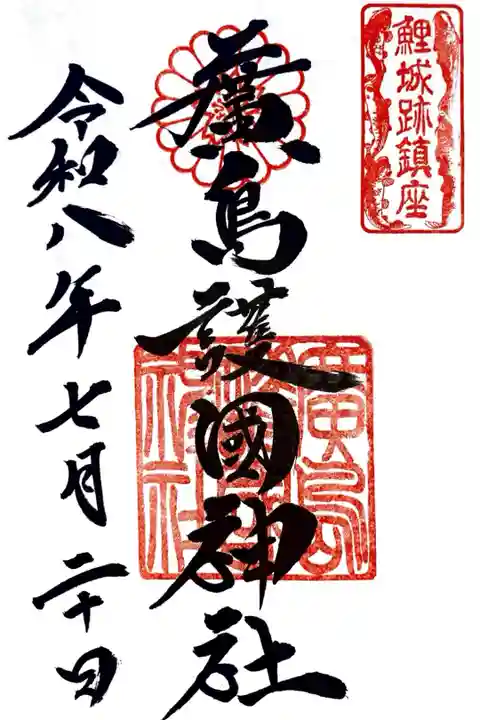 鯉城跡鎮座
廣島護國神社
廣島護國神社
令和八年七月二十日